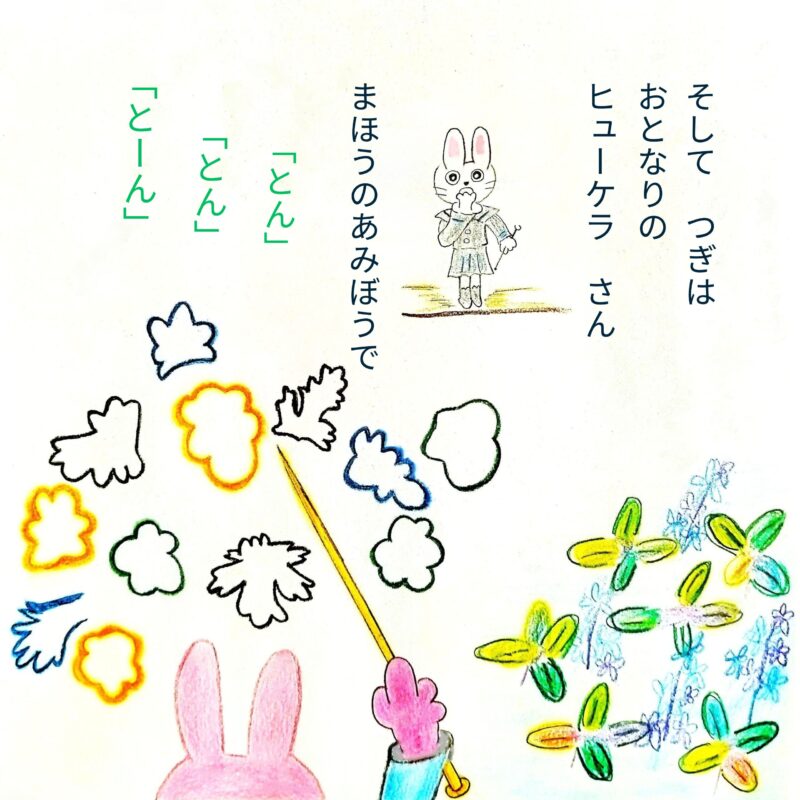 そして　つぎは
おとなりの
ヒューケラ　さん
まほうのあみぼうで
「とん」
「とん」
「とーん」